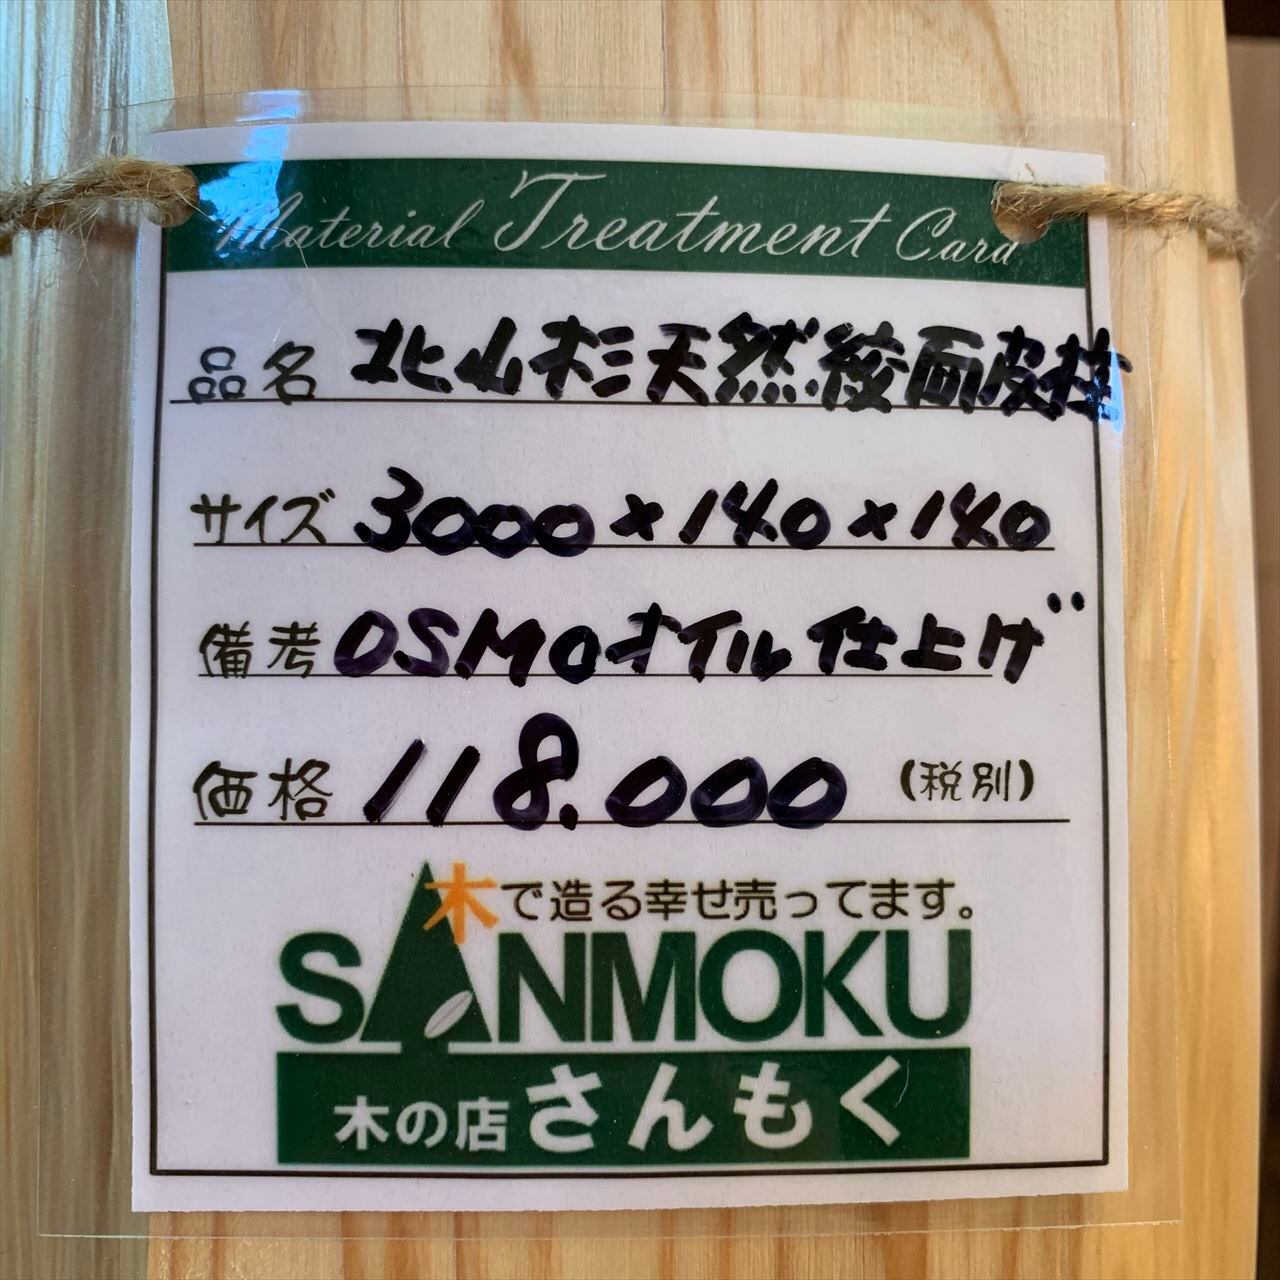 Material Treatment Card
品名 北山杉天然絞面皮柱
サイズ 3000×140×140
備考 OSMOオイル仕上げ
価格 118.000 (税別)
木で造る幸せ売ってます。
SANMOKU
木の店 さんもく